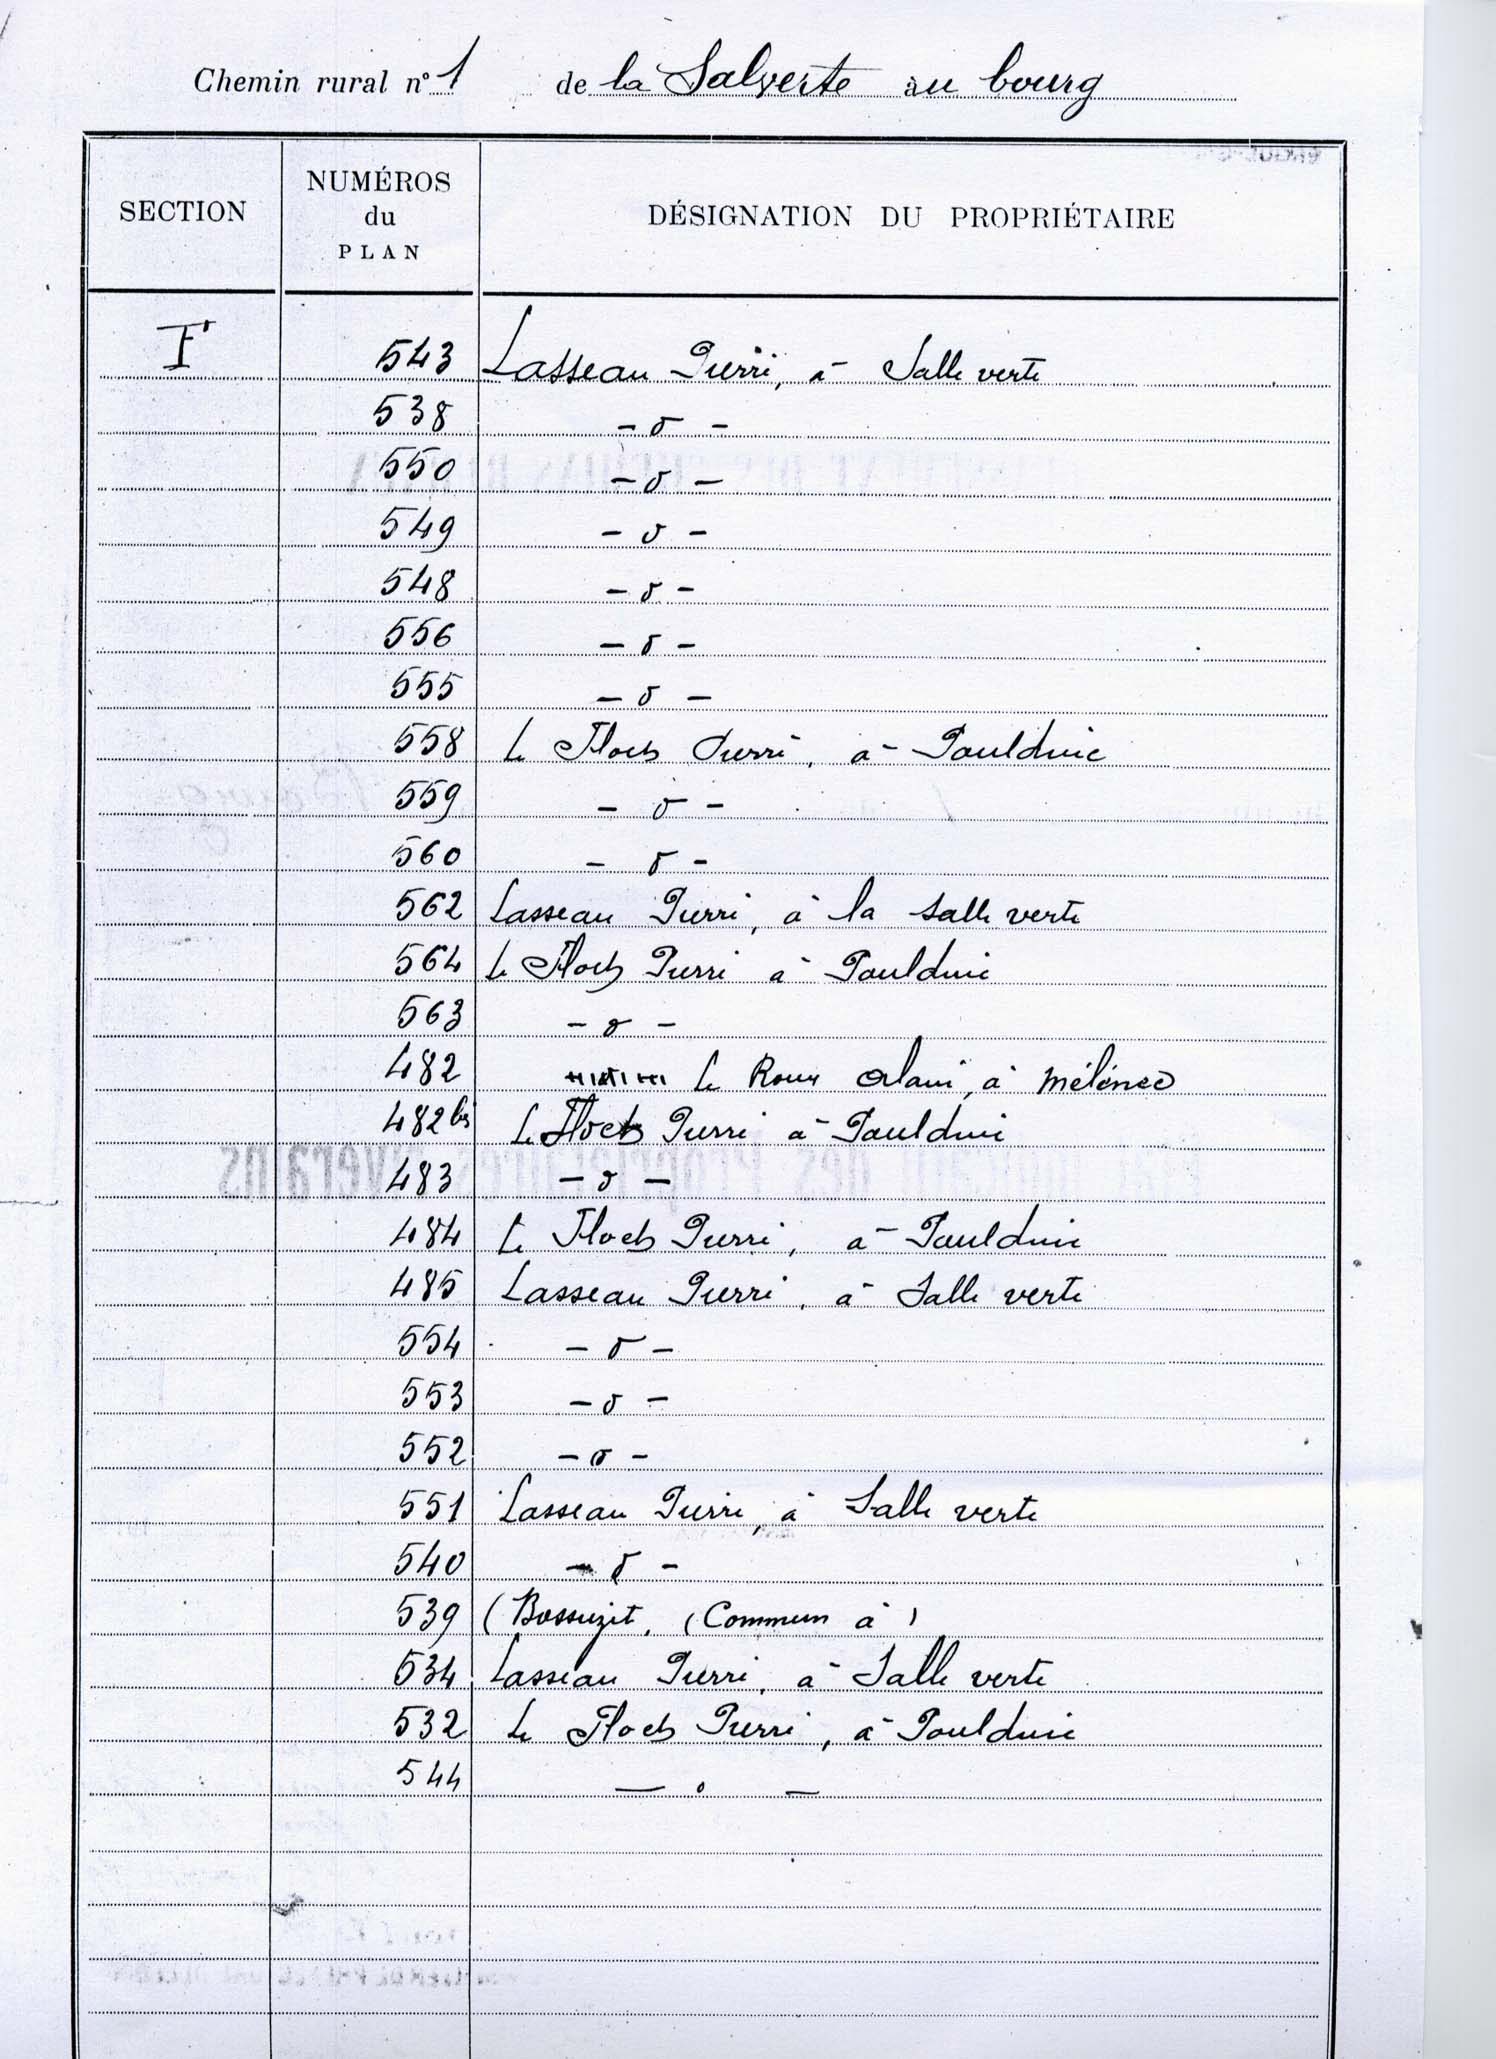 Chemin rural n° 1 de la Salverte au bourg
SECTION
NUMÉROS
du
PLAN
DÉSIGNATION DU PROPRIÉTAIRE
F 543 Lasseau Pierre, à Salle verte
538 - o -
550 - o -
549 - o -
548 - o -
556 - o -
555 - o -
558 Le Floch Pierre, à Poulduic
559 - o -
560 - o -
562 Lasseau Pierre, à la Salle verte
564 Le Floch Pierre à Poulduic
563 - o -
482 Le Roux Alain, à Mélénec
482 bis Le Floch Pierre à Poulduic
483 - o -
484 Le Floch Pierre, à Poulduic
485 Lasseau Pierre, à Salle verte
554 - o -
553 - o -
552 - o -
551 Lasseau Pierre, à Salle verte
540 - o -
539 ( Bossuzit, (Commun à )
534 Lasseau Pierre, à Salle verte
532 Le Floch Pierre, à Poulduic
544 - o -